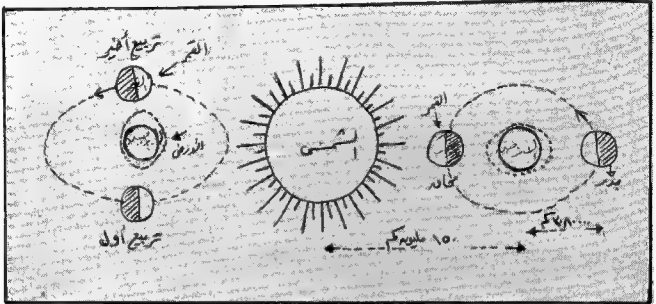 تربيع أخير
القمر
الأرض
تربيع أول
الشمس
القمر
محاق
الأرض
بدر
٣٨٠٠٠٠ كم
١٥٠ مليون كم